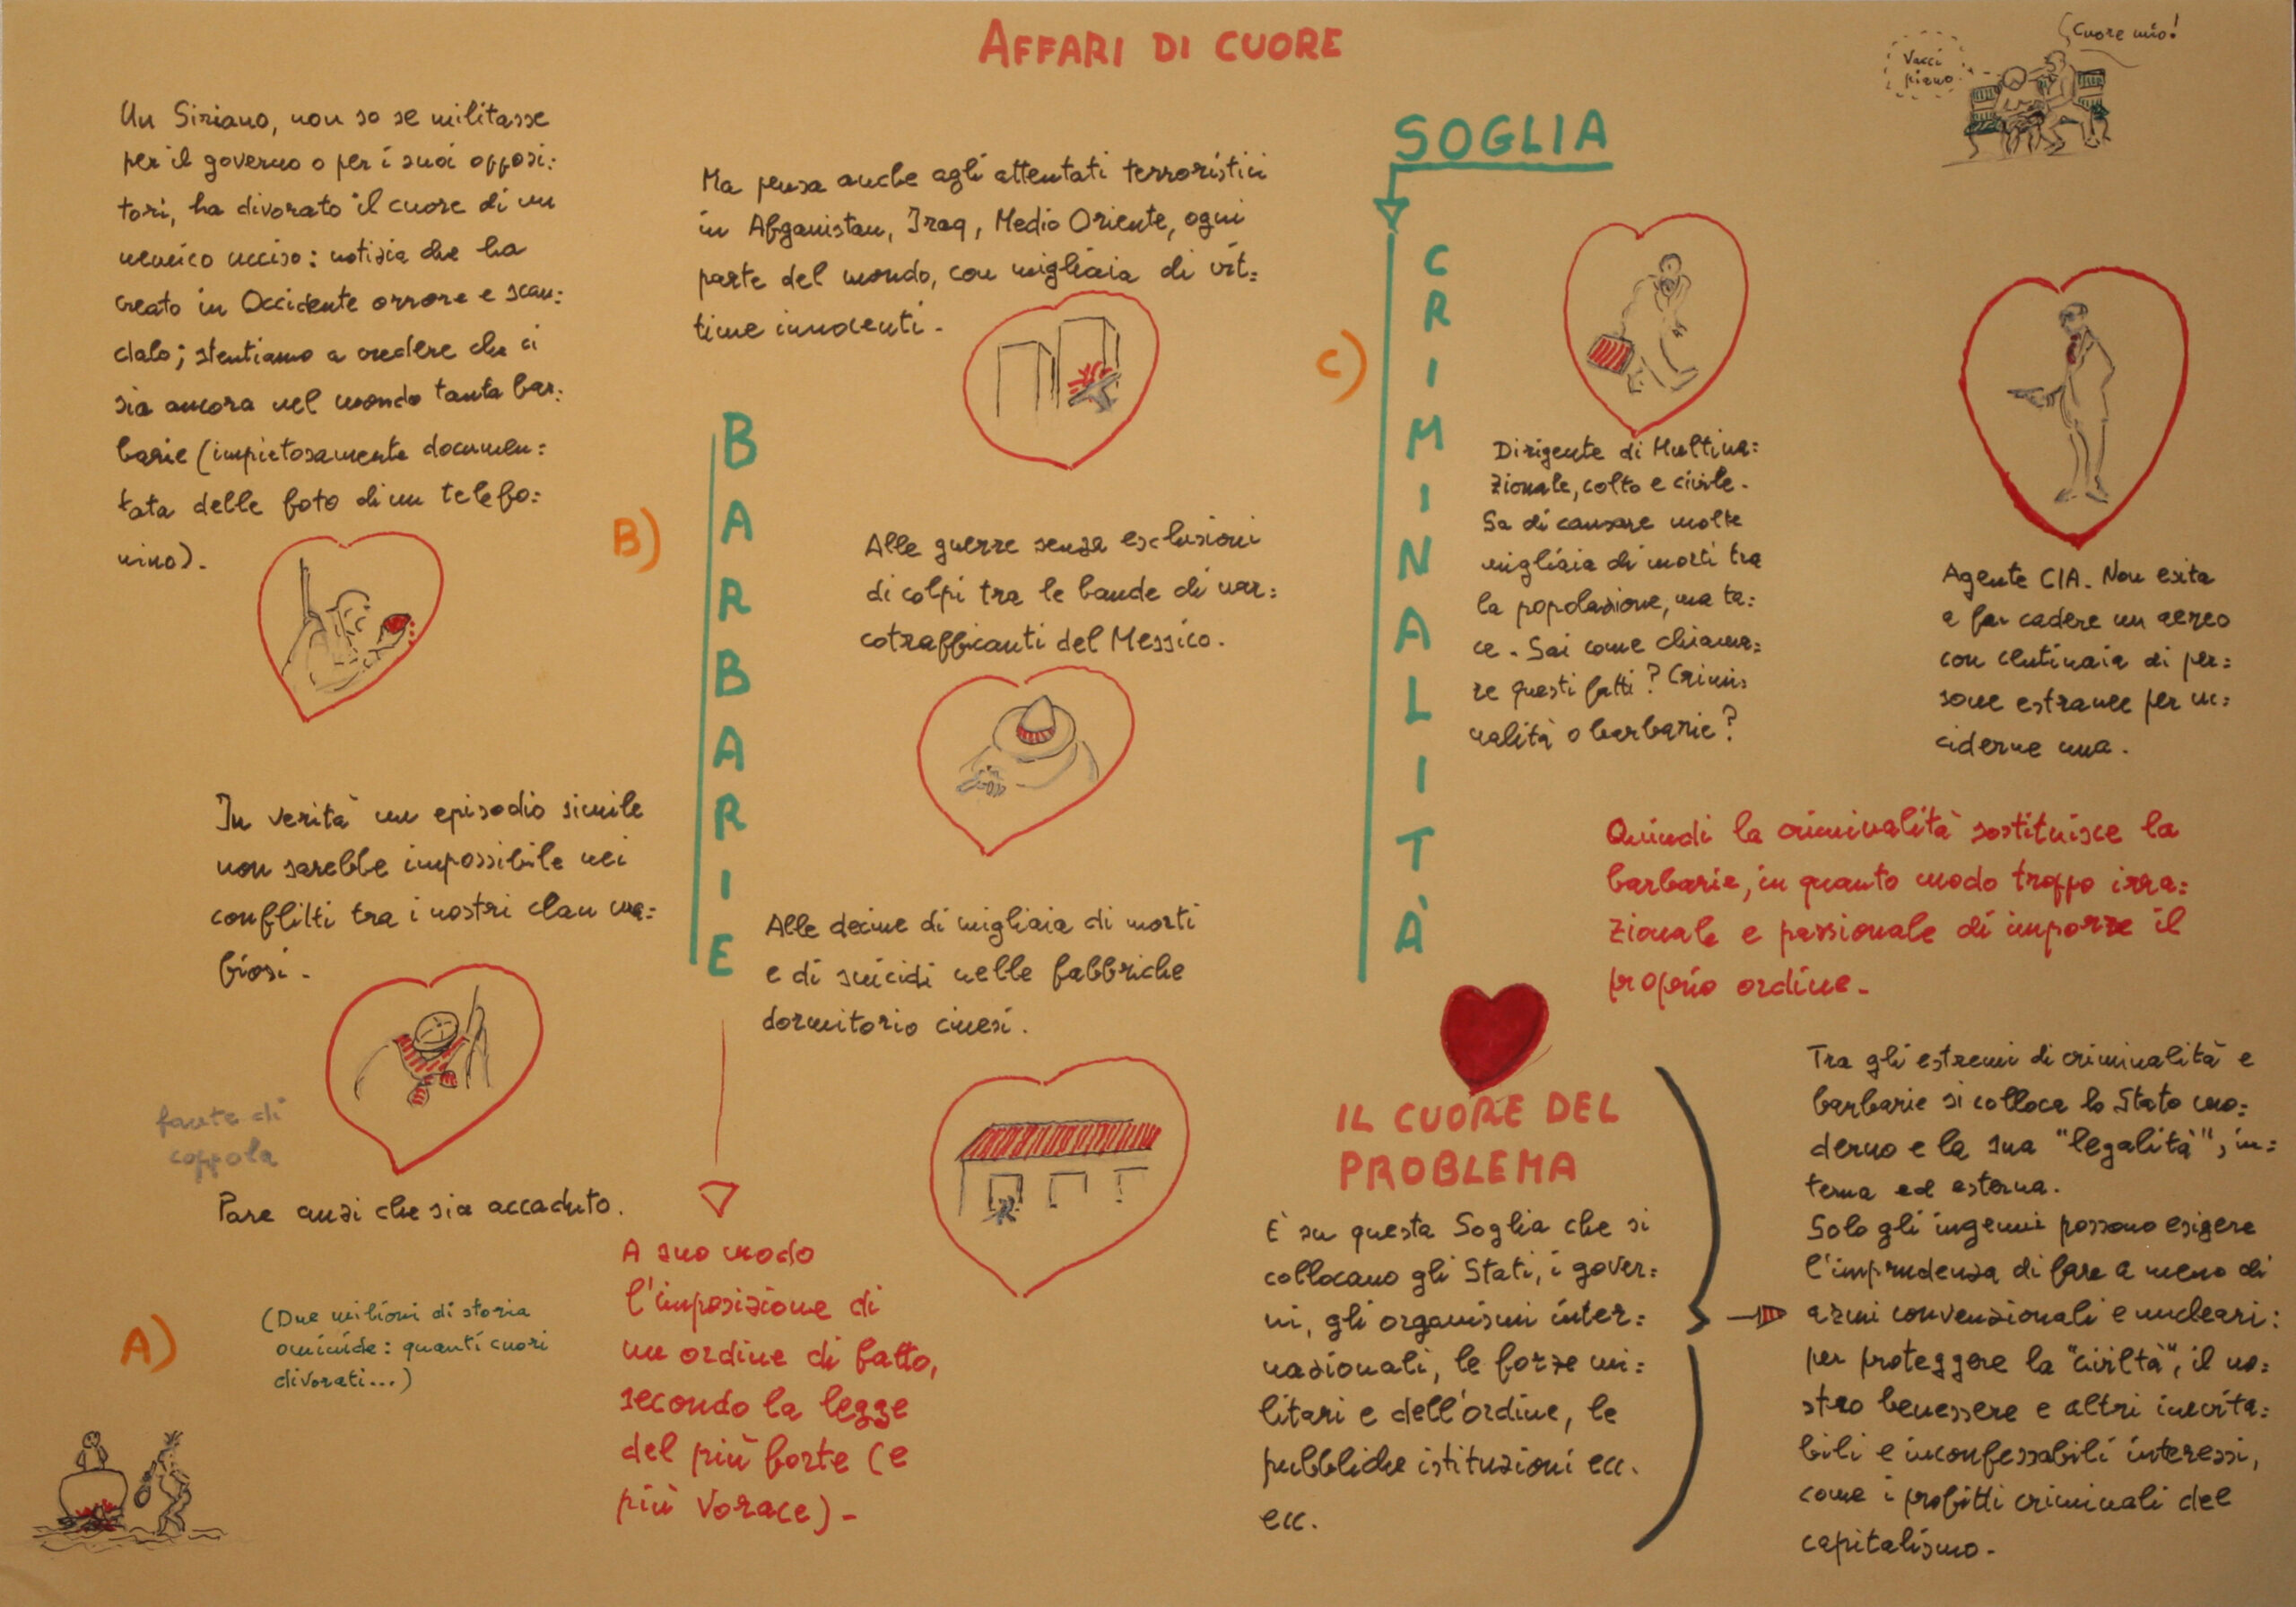 AFFARI DI CUORE
Un Siriano, non so se militasse
per il governo o per i suoi opposi=
tori, ha divorato il cuore di un
nemico ucciso: notizia che ha
creato in Occidente orrore e scan=
dalo; stentiamo a credere che ci
sia ancora nel mondo tanta bar=
barie (impietosamente documen=
tata delle foto di un telefo=
nino).
In verità un episodio simile
non sarebbe impossibile nei
conflitti tra i nostri clan ma=
fiosi.
fante di
coppola
Pare anzi che sia accaduto.
A)
(Due milioni di storia
omicida: quanti cuori
divorati...)
B)
BARBARIE
Ma pensa anche agli attentati terroristici
in Afganistan, Iraq, Medio Oriente, ogni
parte del mondo, con migliaia di vit=
time innocenti.
Alle guerre senza esclusioni
di colpi tra le bande di nar=
cotrafficanti del Messico.
Alle decine di migliaia di morti
e di suicidi nelle fabbriche
dormitorio cinesi.
A suo modo
l'imposizione di
un ordine di fatto,
secondo la legge
del più forte (e
più vorace)-
SOGLIA
C)
CRIMINALITÀ
Vacci
piano
Cuore mio!
Dirigente di Multina=
zionale, colto e civile.
Sa di causare molte
migliaia di morti tra
la popolazione, ma ta=
ce. Sai come chiama=
re questi fatti? Crimi=
nalità o barbarie?
Agente CIA. Non esita
a far cadere un aereo
con centinaia di per=
sone estranee per uc=
ciderne una.
Quindi la criminalità sostituisce la
barbarie, in quanto modo troppo irra=
zionale e passionale di imporre il
proprio ordine.
IL CUORE DEL
PROBLEMA
È su questa Soglia che si
collocano gli Stati, i gover=
ni, gli organismi inter=
nazionali, le forze mi=
litari e dell'ordine, le
pubbliche istituzioni ecc.
ecc.
Tra gli estremi di criminalità e
barbarie si colloca lo Stato mo=
derno e la sua "legalità", in=
terna ed esterna.
Solo gli ingenui possono esigere
l'imprudenza di fare a meno di
armi convenzionali e nucleari:
per proteggere la "civiltà", il no=
stro benessere e altri inevita=
bili e inconfessabili interessi,
come i profitti criminali del
capitalismo-